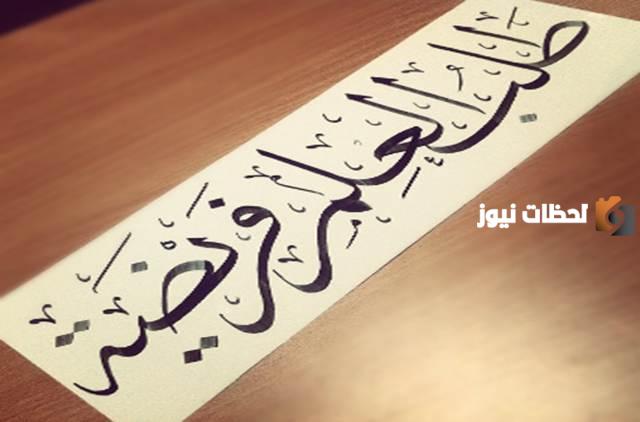 طلب العلم فريضة
لحظات نيوز